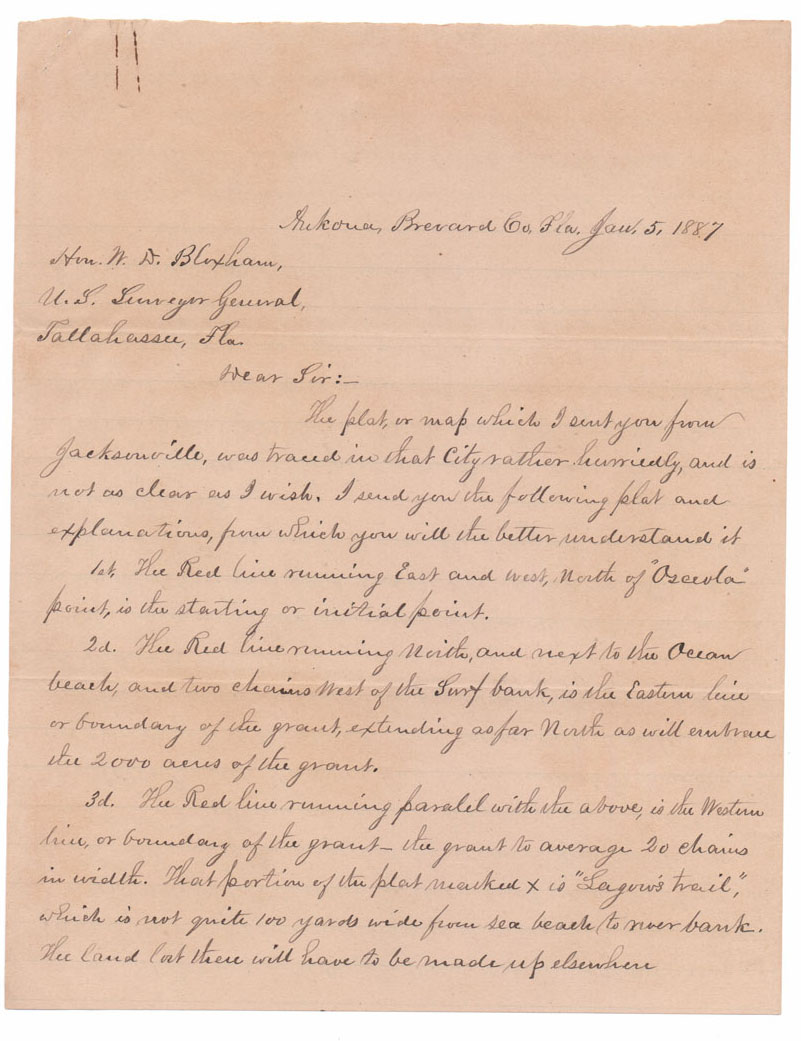 Ankona, Brevard Co, Fla. Jan. 5, 1887
Hon. W. D. Bloxham,
U. S. Surveyor General,
Tallahassee, Fla.
Dear Sir:—
The plat, or map which I sent you from
Jacksonville, was traced in that City rather hurriedly, and is
not as clear as I wish. I send you the following plat and
explanations, from which you will the better understand it
1st. The Red line running East and west, North of "Osceola"
point, is the starting or initial point.
2d. The Red line running North, and next to the Ocean
beach, and two chains West of the Surf bank, is the Eastern line
or boundary of the grant, extending as far North as will embrace
the 2000 acres of the grant.
3d. The Red line running paralel with the above, is the Western
line, or boundary of the grant — the grant to average 20 chains
in width. That portion of the plat marked x is "Gagow's trail",
which is not quite 100 yards wide from sea beach to river bank.
The land lost there will have to be made up elsewhere